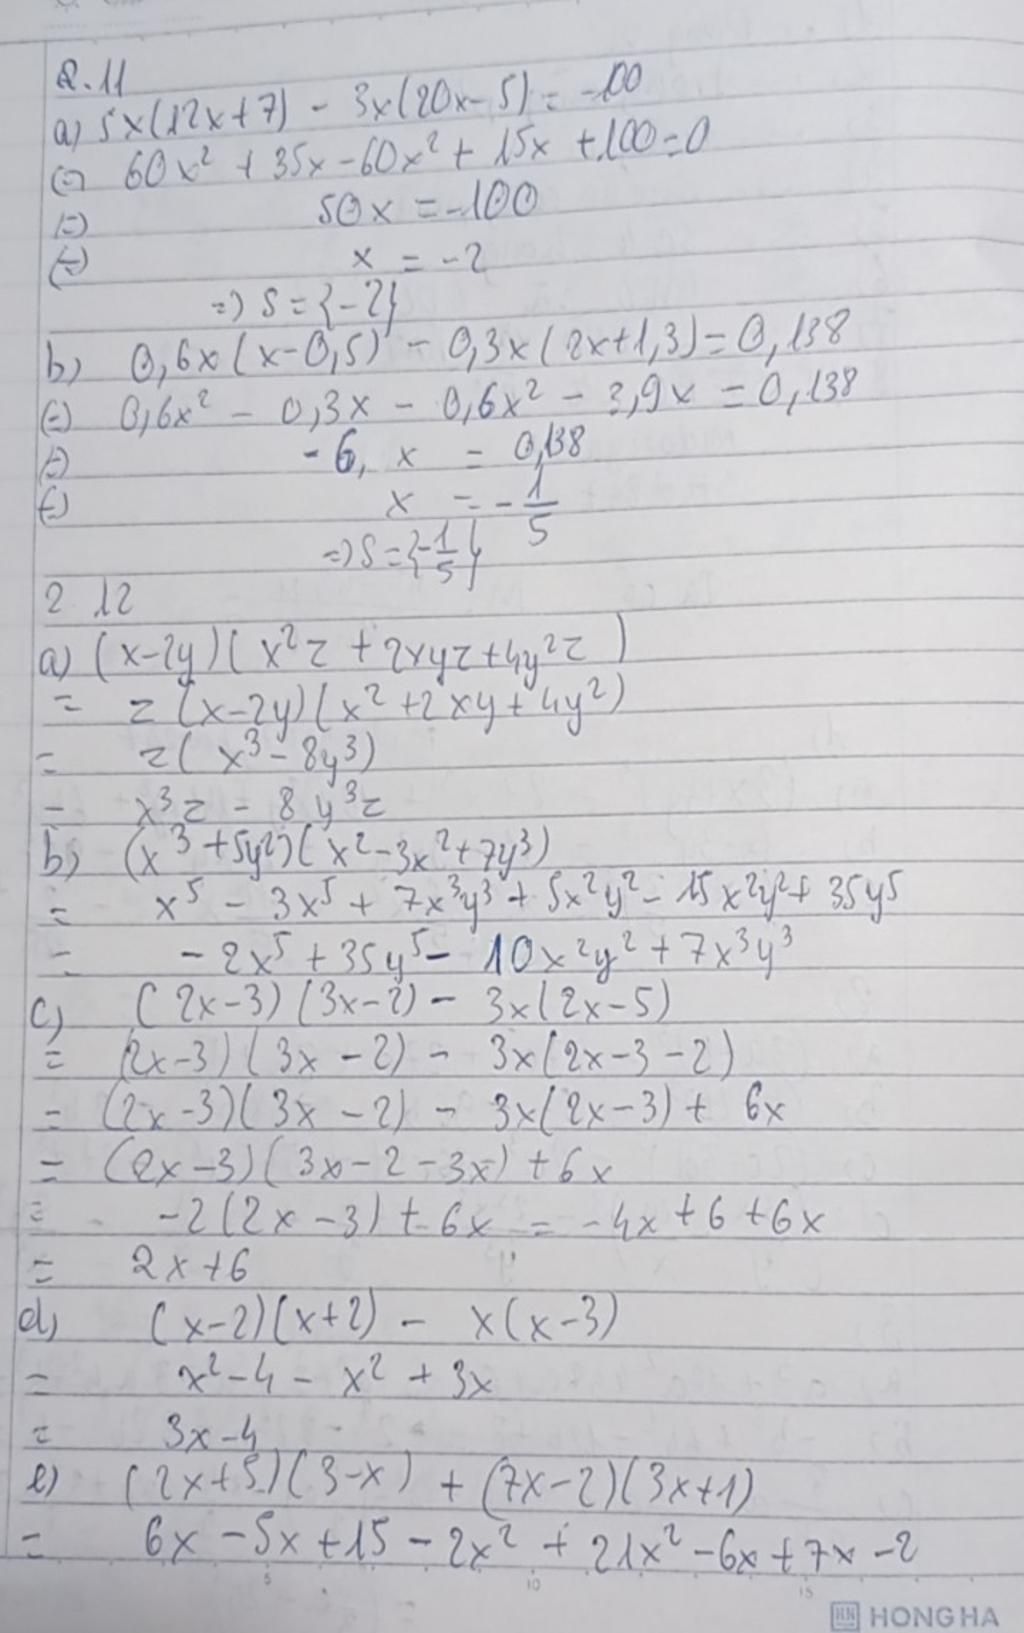 2.11
a) 5x(12x+7) - 3x(20x-5) = -100
(=) 60x² + 35x - 60x² + 15x + 100 = 0
(=) 50x = -100
(=) x = -2
=) S = {-2}
b) 0,6x(x-0,5) - 0,3x(2x+1,3) = 0,138
(=) 0,6x² - 0,3x - 0,6x² - 3,9x = 0,138
(=) -6, x = 0,138
(=) x = -1/5
=) S = {-1/5}
2 12
a) (x-2y)(x²z + 2xyz + 4y²z)
= z(x-2y)(x² + 2xy + 4y²)
= z(x³ - 8y³)
= x³z - 8y³z
b) (x³ + 5y²)(x² - 3x² + 7y³)
= x⁵ - 3x⁵ + 7x³y³ + 5x²y² - 15x²y² + 35y⁵
= -2x⁵ + 35y⁵ - 10x²y² + 7x³y³
c) (2x-3)(3x-2) - 3x(2x-5)
= (2x-3)(3x-2) - 3x(2x-3-2)
= (2x-3)(3x-2) - 3x(2x-3) + 6x
= (2x-3)(3x-2-3x) + 6x
= -2(2x-3) + 6x = -4x + 6 + 6x
= 2x+6
d) (x-2)(x+2) - x(x-3)
= x² - 4 - x² + 3x
= 3x-4
e) (2x+5)(3-x) + (7x-2)(3x+1)
= 6x - 5x + 15 - 2x² + 21x² - 6x + 7x - 2
5 10 15
HH HONG HA